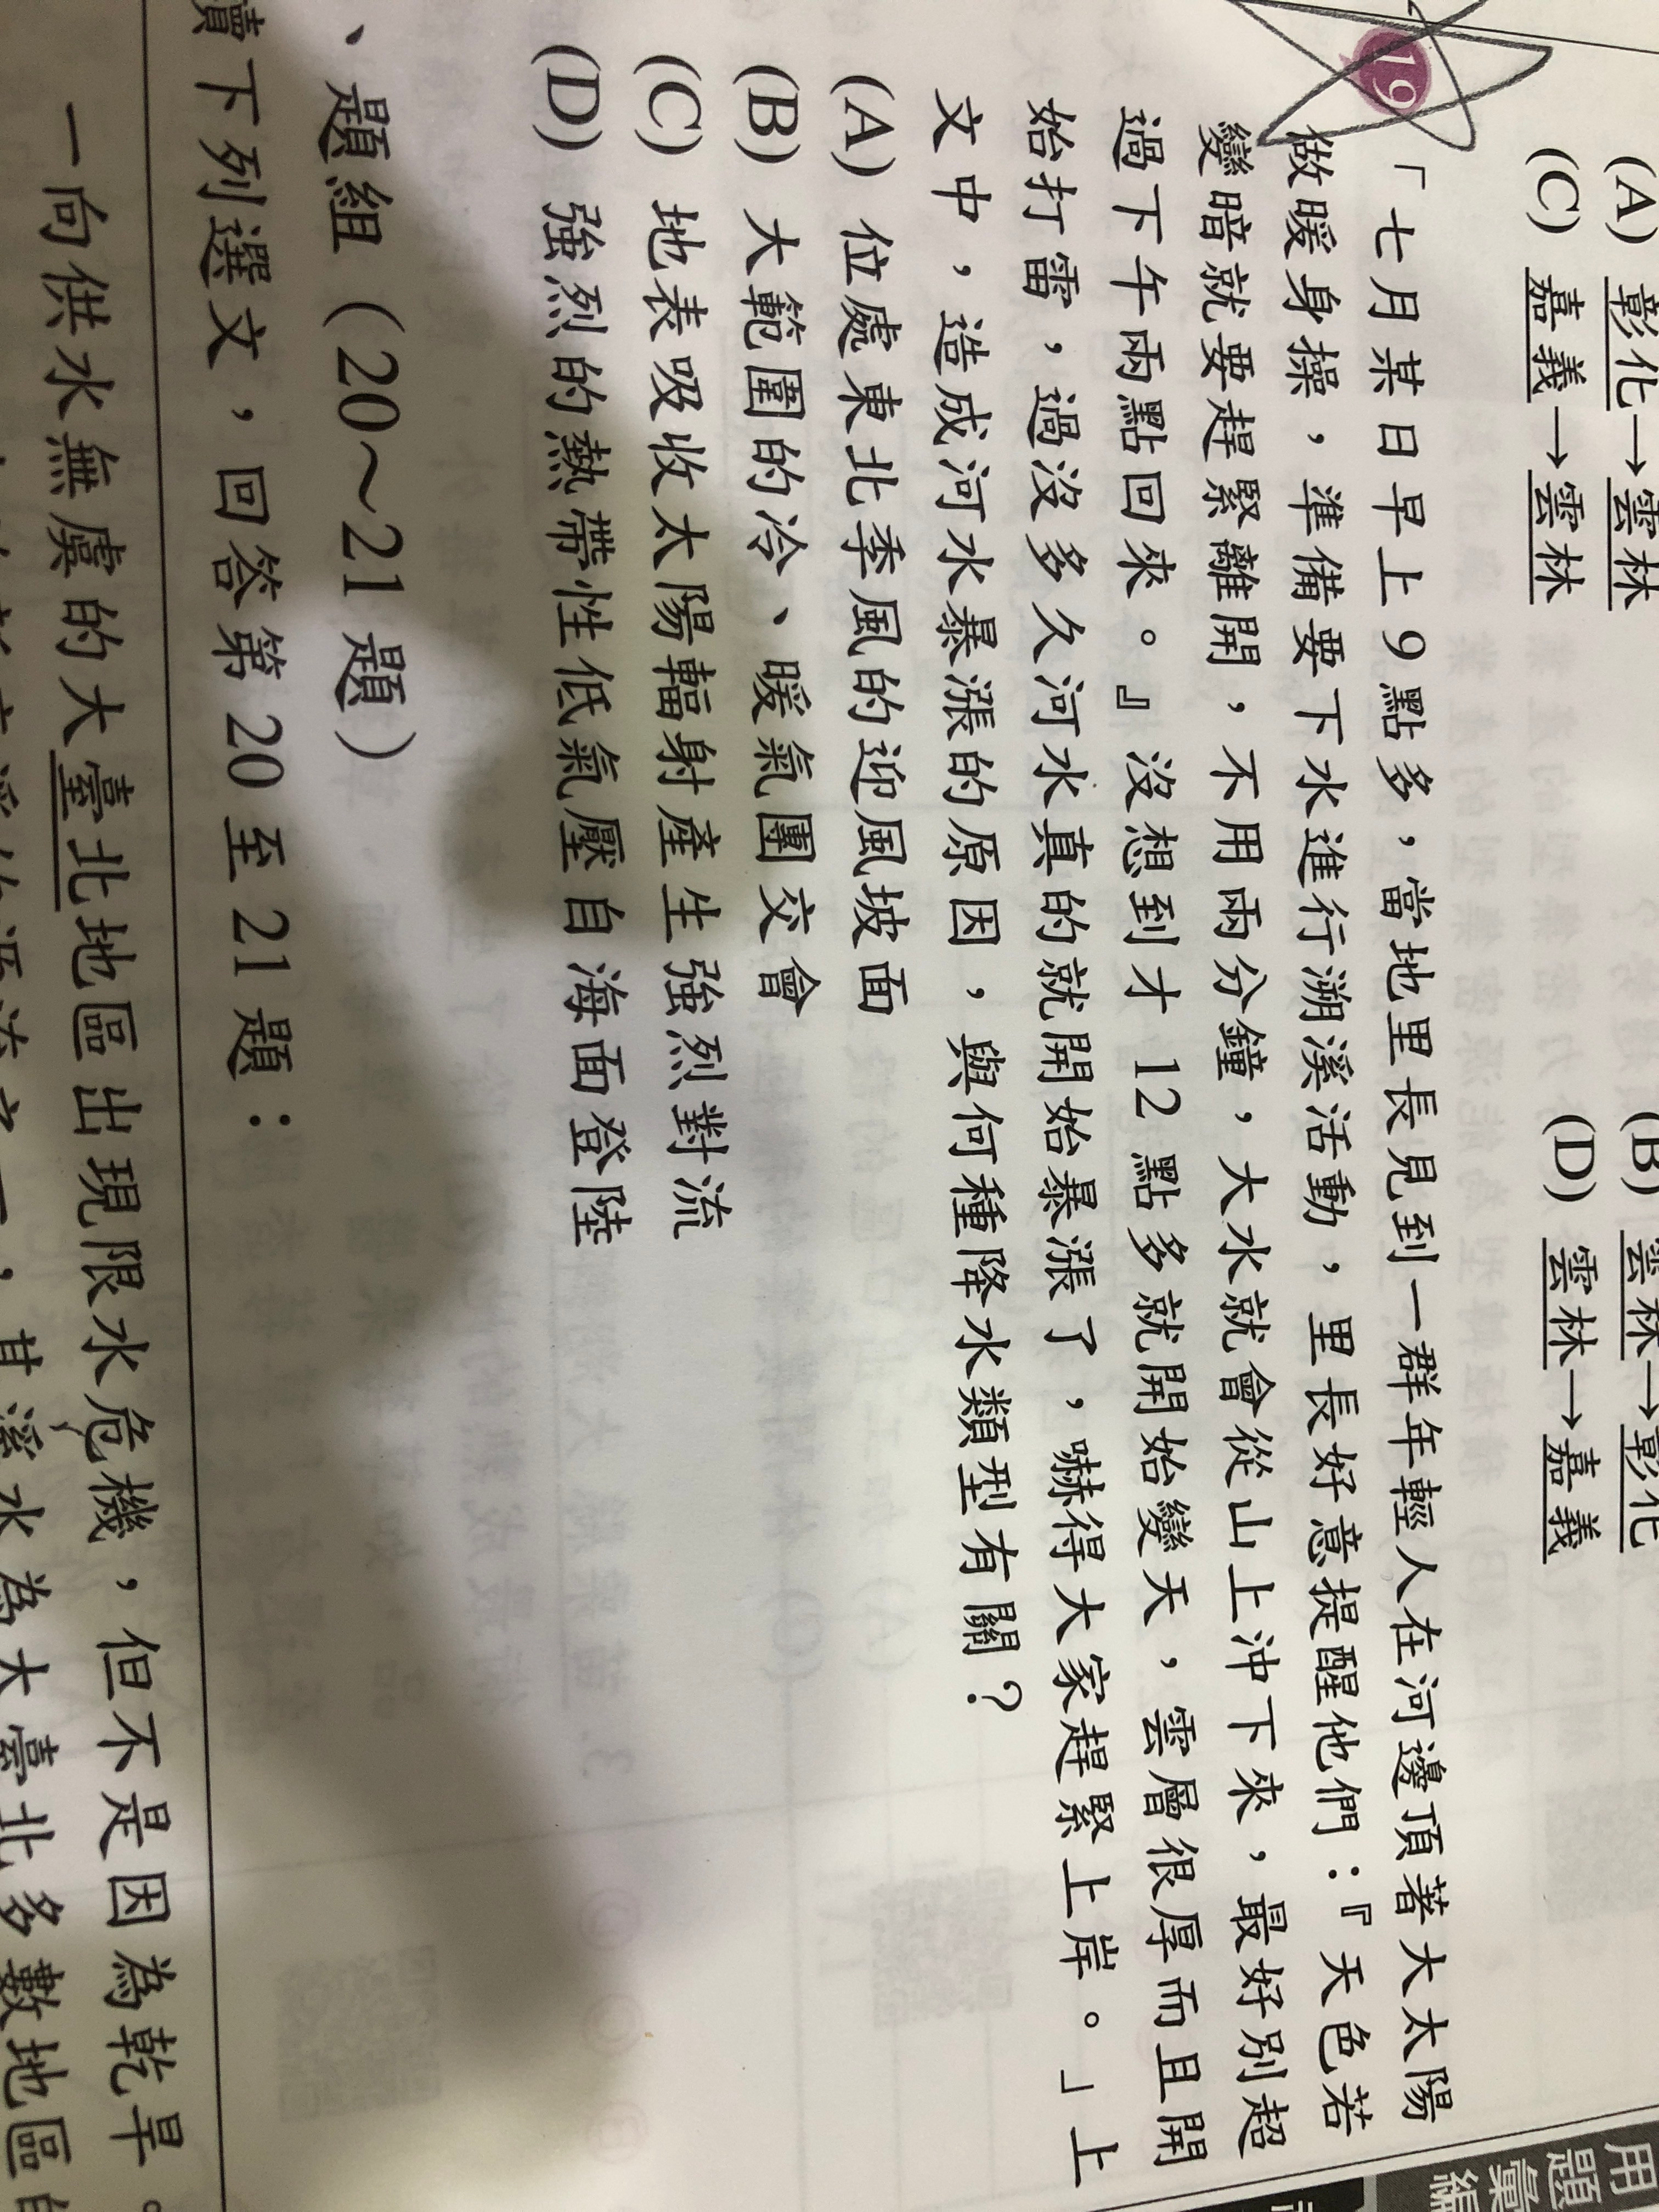 (A) 彰化→雲林 (B) 雲林→彰化
(C) 嘉義→雲林 (D) 雲林→嘉義
19 「七月某日早上9點多，當地里長見到一群年輕人在河邊頂著大太陽
做暖身操，準備要下水進行溯溪活動，里長好意提醒他們：『天色若
變暗就要趕緊離開，不用兩分鐘，大水就會從山上沖下來，最好別超
過下午兩點回來。』沒想到才12點多就開始變天，雲層很厚而且開
始打雷，過沒多久河水真的就開始暴漲了，嚇得大家趕緊上岸。」上
文中，造成河水暴漲的原因，與何種降水類型有關？
(A) 位處東北季風的迎風坡面
(B) 大範圍的冷、暖氣團交會
(C) 地表吸收太陽輻射產生強烈對流
(D) 強烈的熱帶性低氣壓自海面登陸
、題組（20～21題）
讀下列選文，回答第20至21題：
一向供水無虞的大臺北地區出現限水危機，但不是因為乾旱。
，其溪水為大臺北多數地區的
用
題彙編